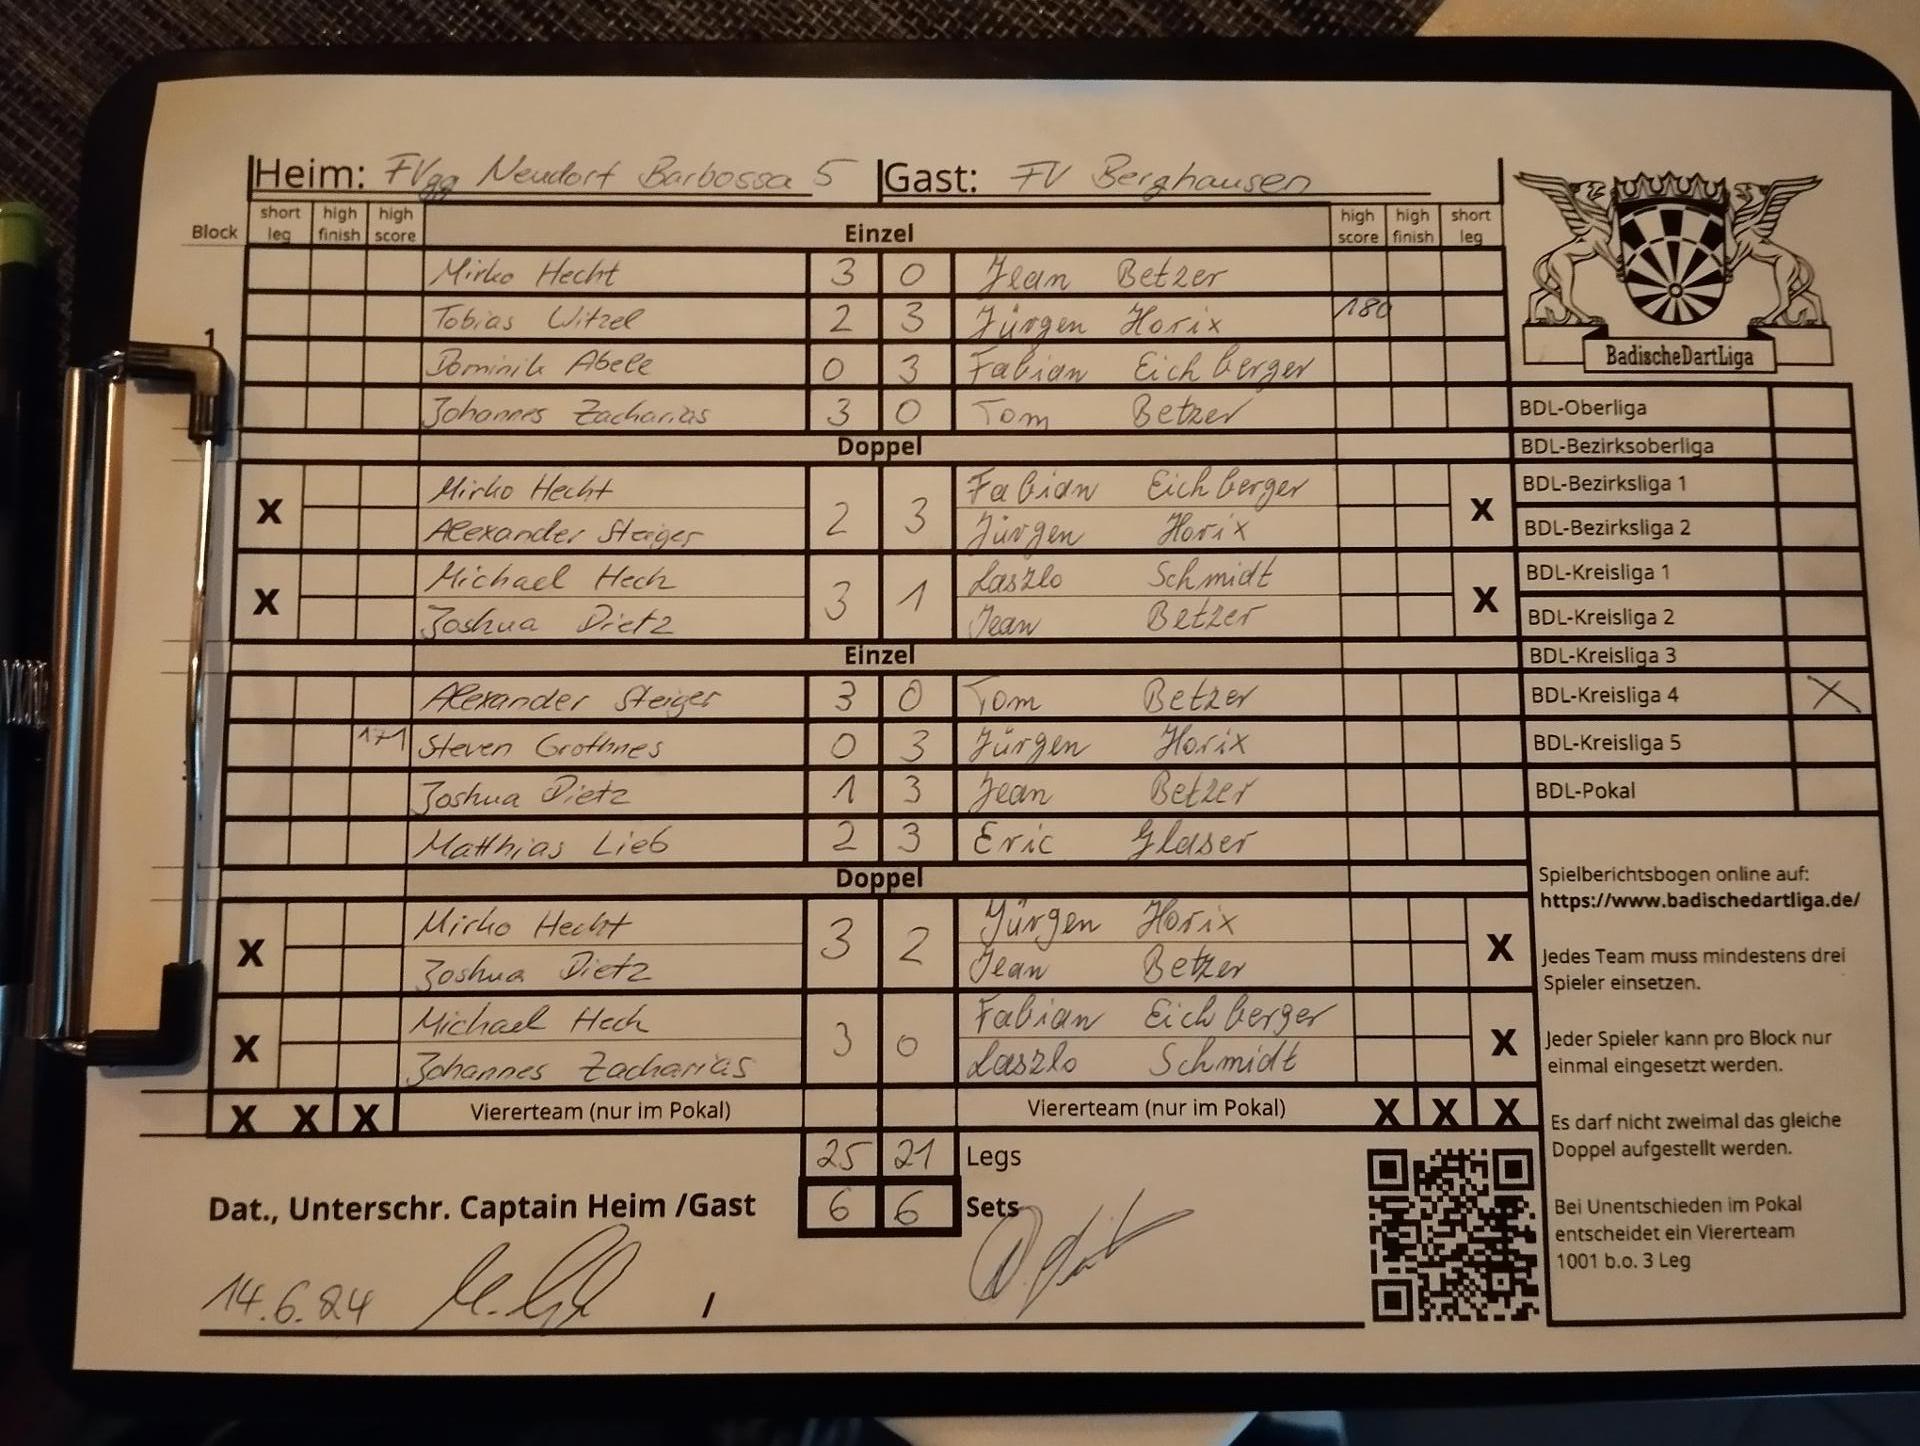 Heim: FVgg Neudorf Barbossa 5 Gast: FV Berghausen
Block short leg high finish high score Einzel high score high finish short leg
Mirko Hecht 3 0 Jean Betzer
Tobias Witzel 2 3 Jürgen Horix 180
1
Dominik Abele 0 3 Fabian Eichberger
Johannes Zacharias 3 0 Tom Betzer
Doppel
X Mirko Hecht 2 3 Fabian Eichberger X
Alexander Steiger Jürgen Horix
X Michael Heck 3 1 Laszlo Schmidt X
Joshua Dietz Jean Betzer
Einzel
Alexander Steiger 3 0 Tom Betzer
171 Steven Grothnes 0 3 Jürgen Horix
Joshua Dietz 1 3 Jean Betzer
Matthias Lieb 2 3 Eric Glaser
Doppel
X Mirko Hecht 3 2 Jürgen Horix X
Joshua Dietz Jean Betzer
X Michael Heck 3 0 Fabian Eichberger X
Johannes Zacharias Laszlo Schmidt
X X X Viererteam (nur im Pokal) Viererteam (nur im Pokal) X X X
25 21 Legs
Dat., Unterschr. Captain Heim /Gast 6 6 Sets
14.6.24 /
BadischeDartLiga
BDL-Oberliga
BDL-Bezirksoberliga
BDL-Bezirksliga 1
BDL-Bezirksliga 2
BDL-Kreisliga 1
BDL-Kreisliga 2
BDL-Kreisliga 3
BDL-Kreisliga 4 X
BDL-Kreisliga 5
BDL-Pokal
Spielberichtsbogen online auf:
https://www.badischedartliga.de/
Jedes Team muss mindestens drei
Spieler einsetzen.
Jeder Spieler kann pro Block nur
einmal eingesetzt werden.
Es darf nicht zweimal das gleiche
Doppel aufgestellt werden.
Bei Unentschieden im Pokal
entscheidet ein Viererteam
1001 b.o. 3 Leg